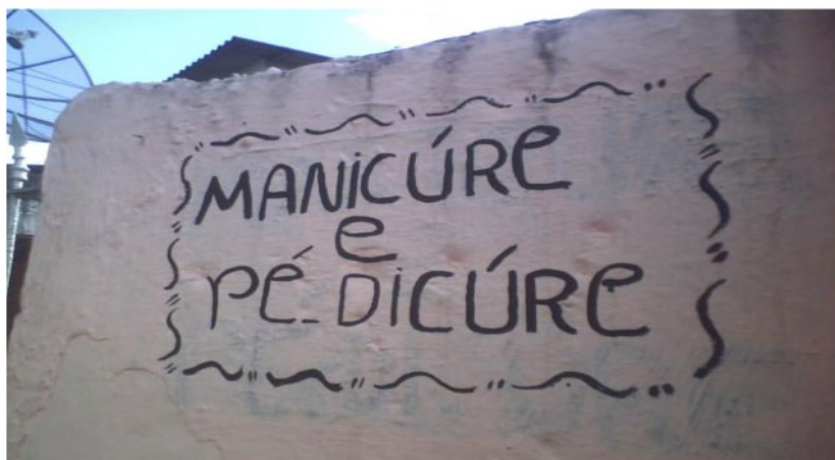 MANICÚRE
e
PÉ-DICÚRE